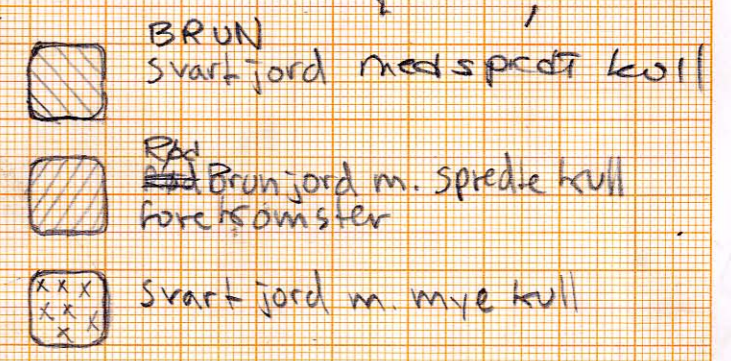 BRUN
svart jord med spredt kull
Rød
Brun jord m. spredte kull
forekomster
svart jord m. mye kull